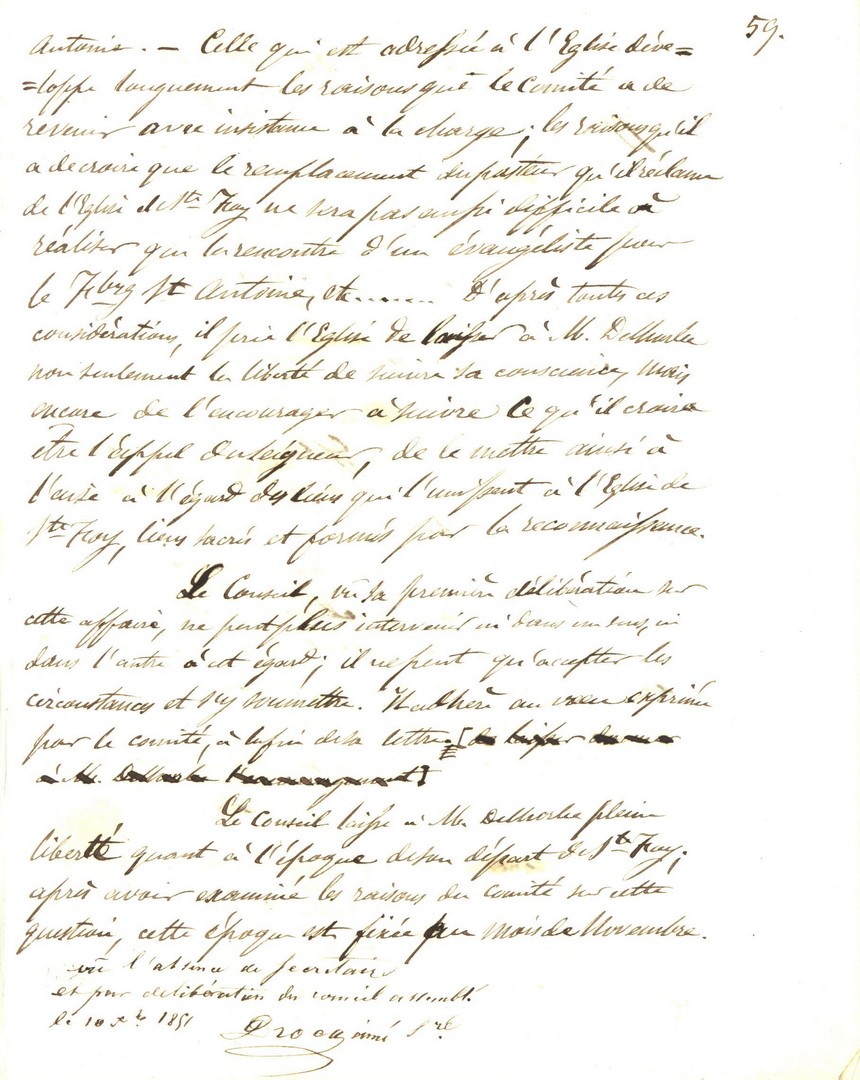 59.
Antoine. — Celle qui est adressée à l'Eglise déve=
=loppe longuement les raisons que le Comité a de
revenir avec instance à la charge; les raisons qu'il
a de croire que le remplacement du pasteur qu'il réclame
de l'Eglise de Ste Foy ne sera pas aussi difficile à
réaliser que la rencontre d'un évangéliste pour
le Fbrg St Antoine, etc....... D'après toutes ces
considérations, il prie l'Eglise de laisser à M. Delhorbe
non seulement la liberté de suivre sa conscience, mais
encore de l'encourager à suivre ce qu'il croira
être l'appel du Seigneur, de le mettre ainsi à
l'aise à l'égard des liens qui l'unissent à l'Eglise de
Ste Foy, liens sacrés et formés par la reconnaissance.
Le Conseil, vu sa première délibération sur
cette affaire, ne peut plus intervenir ni dans un sens, ni
dans l'autre à cet égard; il ne peut qu'accepter les
circonstances et s'y soumettre. Il adhère au vœu exprimé
par le comité, à la fin de sa lettre [de laisser
à M. Delhorbe
Le Conseil laisse à M. Delhorbe pleine
liberté quant à l'époque de son départ de Ste Foy;
après avoir examiné les raisons du comité sur cette
question, cette époque est fixée au mois de Novembre.
vu l'absence de secrétaire
et par délibération du conseil assemblé
le 10 Xbre 1851